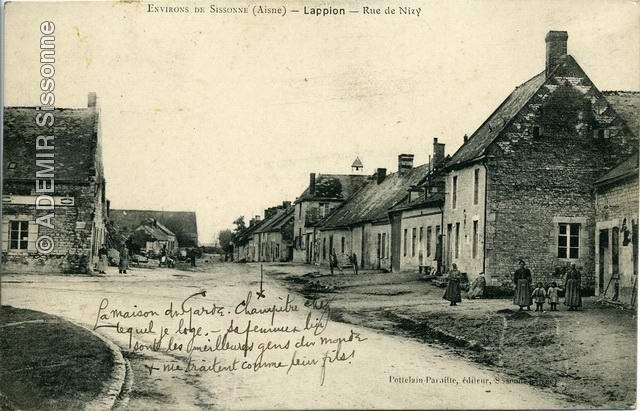 Environs de Sissonne (Aisne) — Lappion — Rue de Nizy
© ADEMIR Sissonne
La maison du Garde. Champêtre chez
lequel je loge. — Sa femme & lui
sont les meilleurs gens du monde
& me traitent comme leur fils!
Pottelain-Paraitte, éditeur, Sissonne (Aisne)